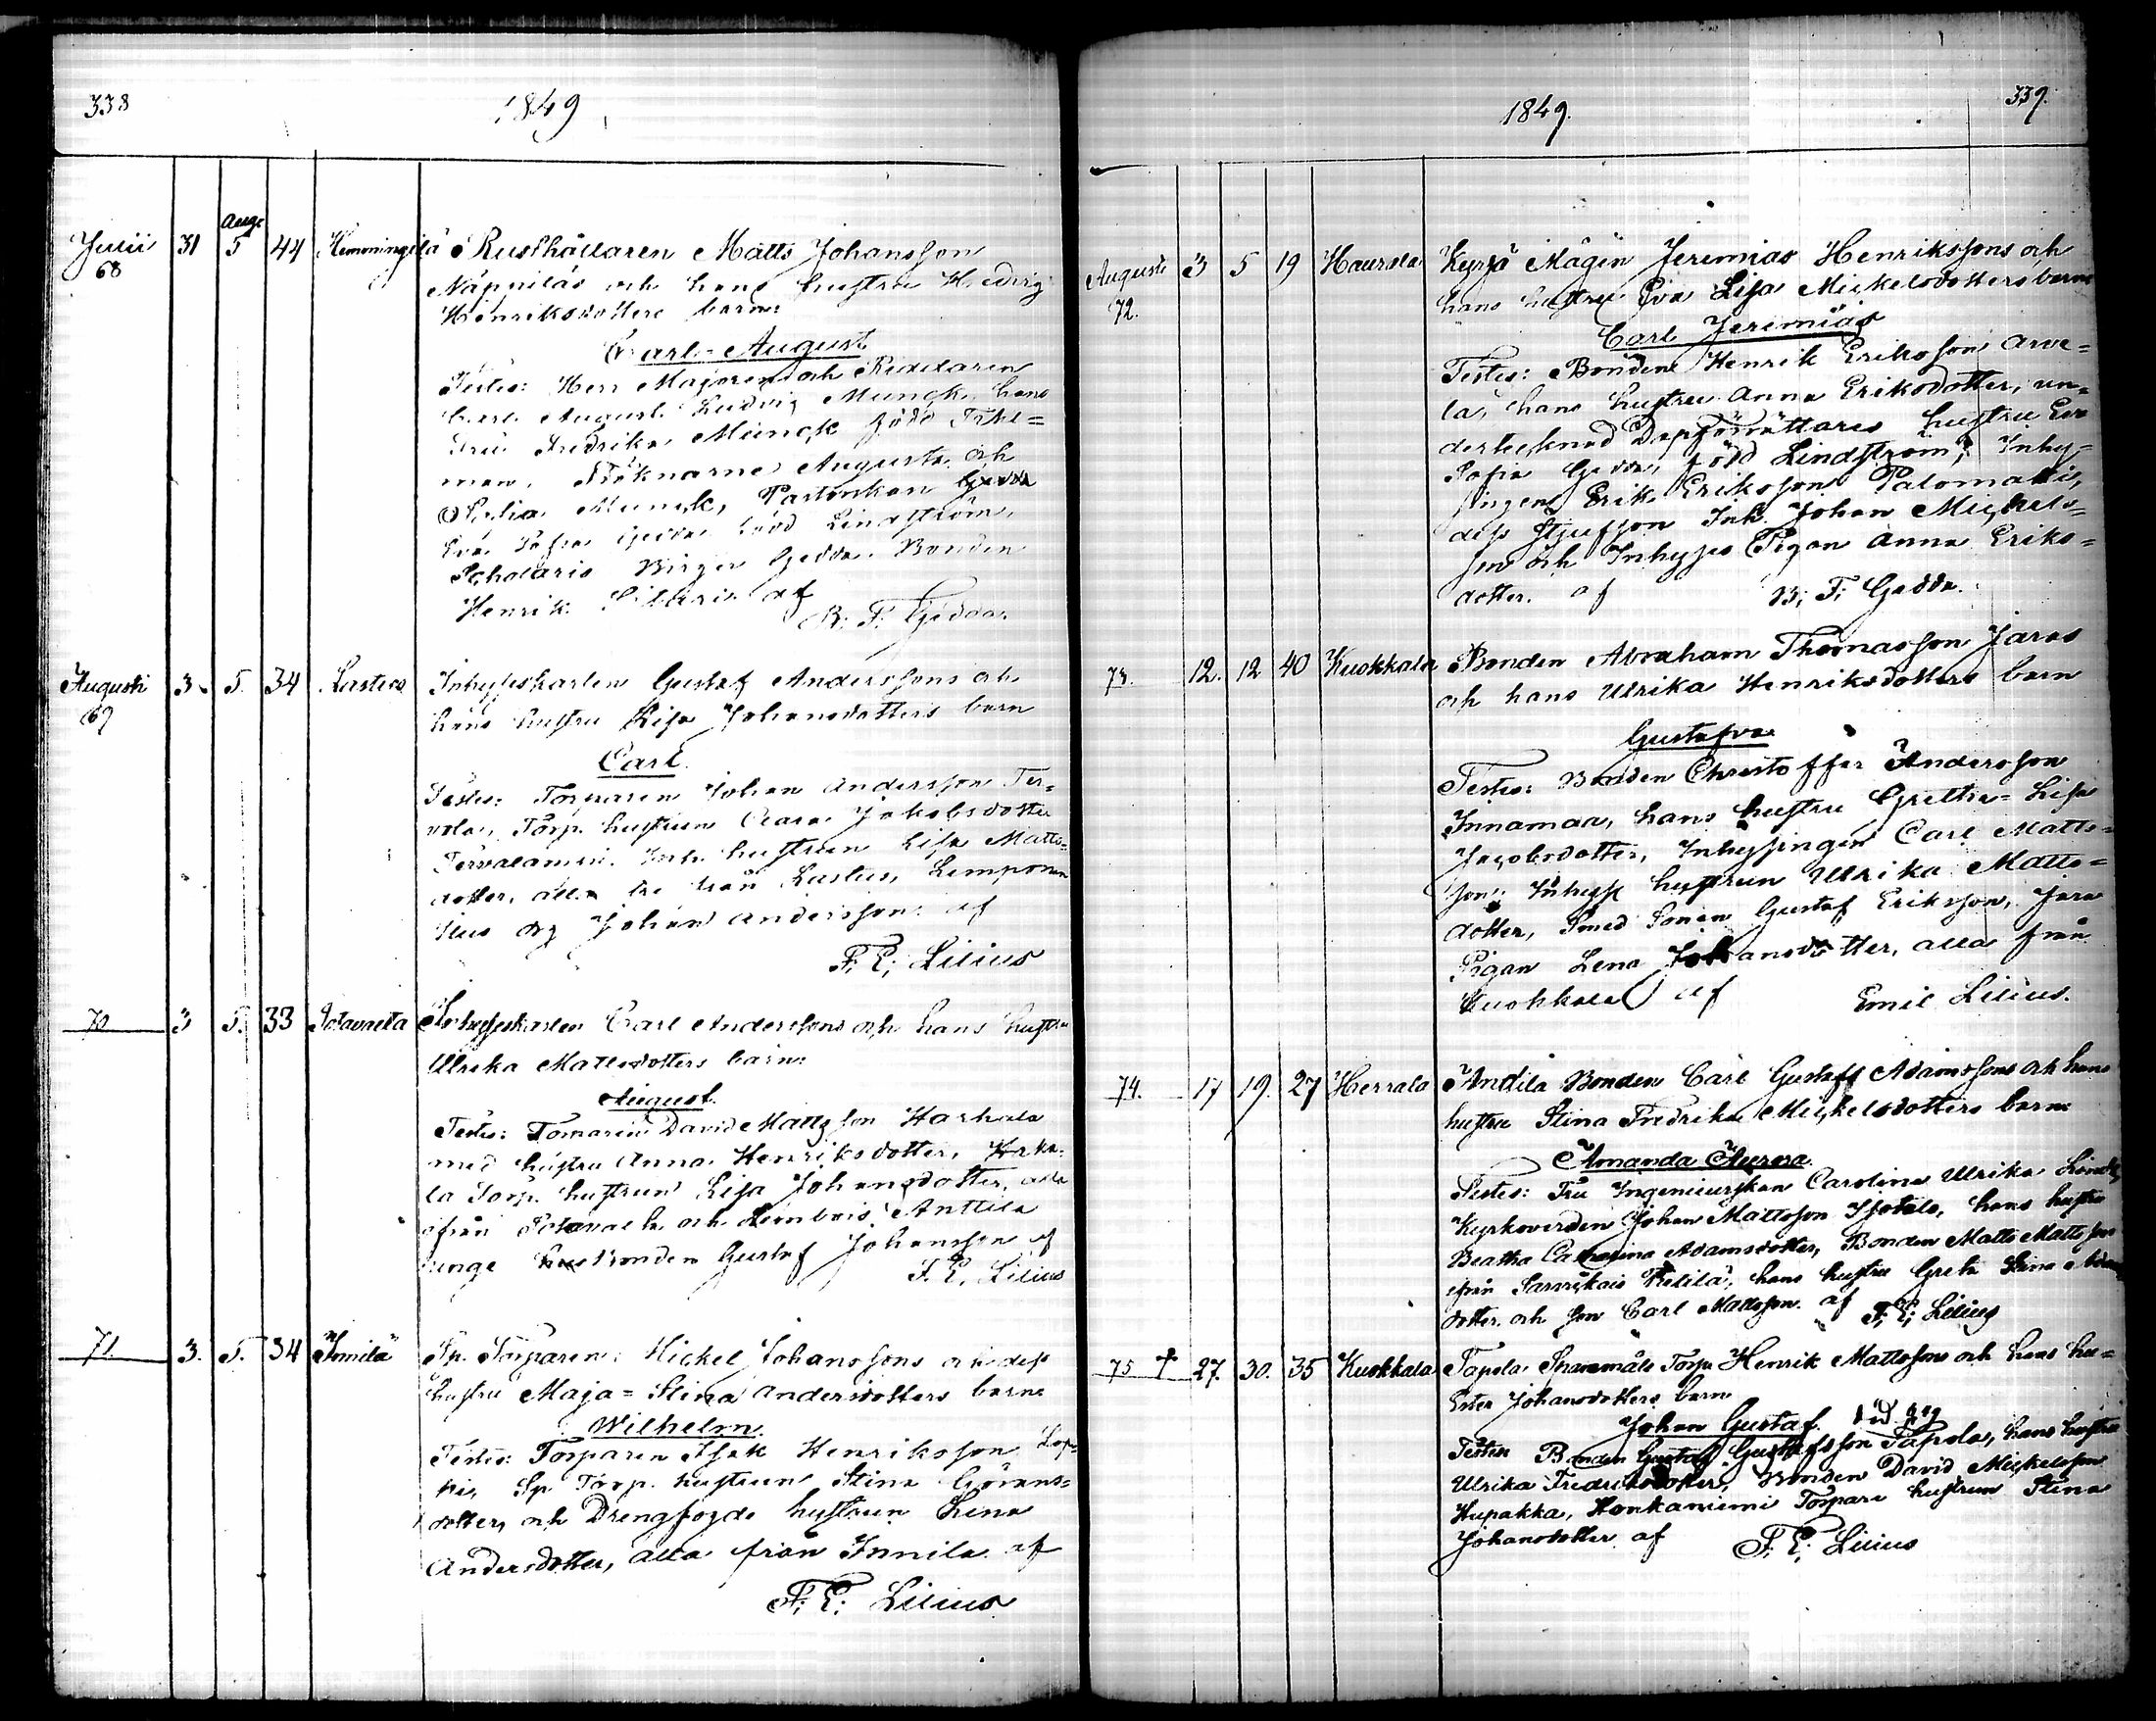 338
1849
Julii 31 Aug: 5 44 Hemmingilä Rusthållaren Matts Johansson
68
Näppiläs och hans hustru Hedvig
Henriksdotters barn:
Carl-August
Testes: Herr Majoren och Riddaren
Carl August Ludvig Munck, hans
Fru Fredrika Munck född
man, Fröknarne Augusta och
Munck, Pastorskan Gedda
Eva Sofia Gedda född Lindström,
Scholaris Birger Gedda Bonden
Henrik af
B. F. Gedda.
Augusti 3. 5. 34 Lastus Inhyseskarlen Gustaf Anderssons och
69
hans hustru Lisa Johansdotters barn
Carl.
Testes: Torparen Johan Andersson Ter-
vola, Torp. hustrun Clara Jakobsdotter
Tervalamni. Inh. hustrun Lisa Matts-
dotter, alla tre från Lastus, Lemponen
drg Johan Andersson. af
F. E. Lilius
70 3 5. 33 Potavaelta Inhyseskarlen Carl Anderssons och hans hustru
Ulrika Mattsdotters barn:
August.
Testes: Tomaren David Mattsson Harhala
med hustru Anna Henriksdotter, Harha-
la Torp. hustrun Lisa Johansdotter, alla
från och Lembois Anttila
unge Bonden Gustaf Johansson af
F. E. Lilius
71. 3. 5. 34 Innilä Sp. Torparen Mickel Johanssons och dess
hustru Maja-Stina Andersdotters barn
Wilhelm.
Testes: Torparen Isak Henriksson Lop-
pi, Sp Torp. hustrun Stina Görans-
dotter, och Drengfogde hustrun Lena
Andersdotter, alla från Innilä af
F. E. Lilius
1849.
339.
Augusti 3 5 19 Haurala Kyrjä Mågen Jeremias Henrikssons och
72.
hans hustru Eva Lisa Mickelsdotters barn
Carl Jeremias
Testes: Bonden Henrik Eriksson Arve-
la, hans hustru Anna Eriksdotter, un-
dertecknad Dopförrättares hustru Eva
Sofia Gedda, född Lindström, Inhy-
singen Erik Eriksson Palomäki,
dess Styfson Inh. Johan Mickels-
son och Inhyses Pigan Anna Eriks-
dotter. af B. F. Gedda.
73. 12. 12 40 Kuokkala Bonden Abraham Thomasson Jaras
och hans Ulrika Henriksdotters barn
Gustafva
Testes: Bonden Christoffer Andersson
Innamaa, hans hustru Gretha-Lisa
Jacobsdotter, Inhysingen Carl Matts-
son, Inhyse hustrun Ulrika Matts-
dotter, Smed Sonen Gustaf Eriksson, Jara
Pigan Lena Johansdotter, alla från
Kuokkala af Emil Lilius.
74. 17 19. 27 Herrala Andila Bonden Carl Gustaff Adamssons och hans
hustru Stina Fredrika Mickelsdotters barn
Amanda Aurora.
Testes: Fru Ingenieurskan Carolina Ulrika
Kyrkovärden Johan Mattsson Isotalo, hans hustru
Beatha Catharina Adamsdotter, Bonden Matts Mattsson
från Särvikais hans hustru Greta Stina
dotter. och son Carl Mattsson. af F. E. Lilius
75 † 27. 30. 35 Kuokkala Tapola Torp. Henrik Mattssons och hans hu-
Johansdotters barn
Johan Gustaf.
Testes Bonden Gustaf Gustafsson Tapola, hans hustru
Ulrika Fredriksdotter, Bonden David Mickelsson
Hupakka, Honkaniemi Torpare hustrun Stina
Johansdotter. af F. E. Lilius